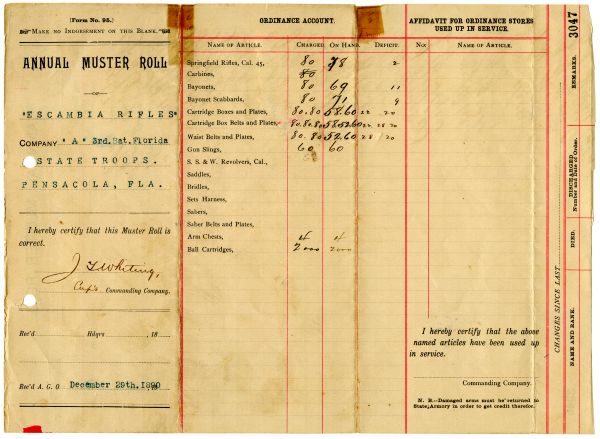 (Form No. 95.)
MAKE NO INDORSEMENT ON THIS BLANK.
ANNUAL MUSTER ROLL
—OF—
"ESCAMBIA RIFLES"
COMPANY "A" 3rd.Bat.Florida
STATE TROOPS.
PENSACOLA, FLA.
I hereby certify that this Muster Roll is
correct.
J Whiting,
Capt Commanding Company.
Rec'd Hdqrs , 18
Rec'd A. G. O December 29th. 1890
ORDINANCE ACCOUNT.
NAME OF ARTICLE. CHARGED. ON HAND. DEFICIT.
Springfield Rifles, Cal. 45, 80 78 2
Carbines, 80
Bayonets, 80 69 11
Bayonet Scabbards, 80 71 9
Cartridge Boxes and Plates, 80.80 58.60 22 20
Cartridge Box Belts and Plates, 80.80.80 58.52.60 22 28 20
Waist Belts and Plates, 80.80 52.60 28/20
Gun Slings, 60 60
S. S. & W. Revolvers, Cal.,
Saddles,
Bridles,
Sets Harness,
Sabers,
Saber Belts and Plates,
Arm Chests, 4 4
Ball Cartridges, 2000 2000
AFFIDAVIT FOR ORDINANCE STORES
USED UP IN SERVICE.
No: NAME OF ARTICLE.
I hereby certify that the above
named articles have been used up
in service.
Commanding Company.
N. B.—Damaged arms must be returned to
State Armory in order to get credit therefor.
CHANGES SINCE LAST
3047
REMARKS.
DISCHARGED
Number and Date of Order.
DIED.
NAME AND RANK.